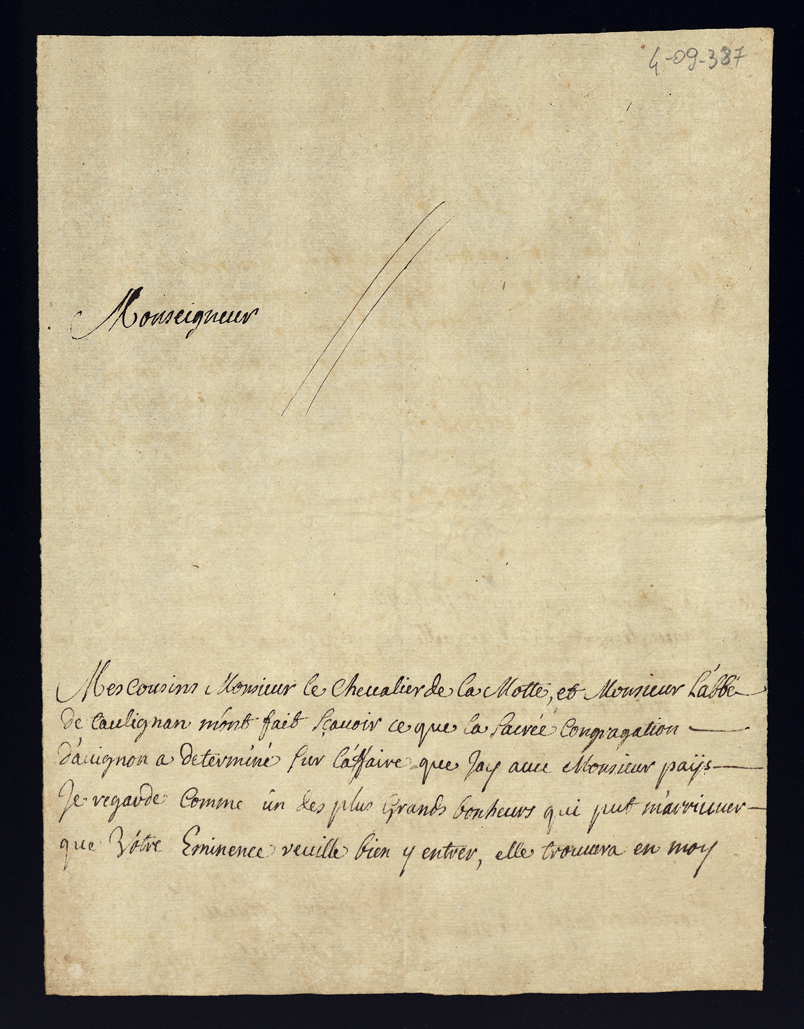 4-09-387
Monseigneur
Mes Cousins Monsieur le Chevalier de la Motte, et Monsieur L'abbé
de Taulignan m'ont fait sçavoir ce que la Sacréé Congragation
d'avignon a determiné sur l'affaire que Jay avec Monsieur paÿs
Je regarde Comme un des plus Grands bonheurs qui put m'arriuuer
que Vôtre Eminence veuille bien y entrer, elle trouuera en moy